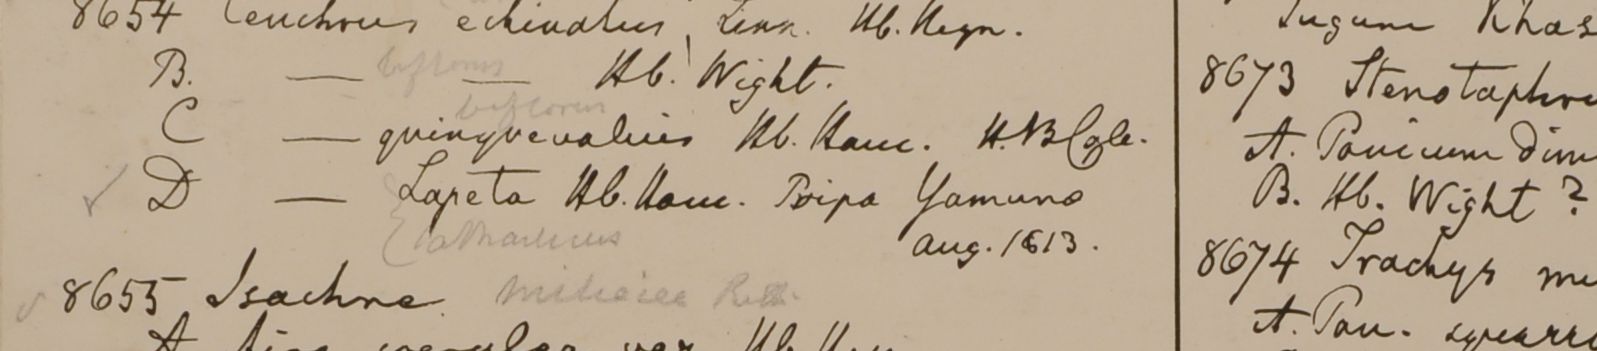 8654 Cenchrus echinatus Linn. Hb. Heyn.
B. — biflorus — Hb. Wight.
biflorus
C — quinquevalvis Hb. Ham. H.B. Calc.
D — Lapeta Hb. Ham. Ripa Yamuna
Catharticus aug. 1813.
8655 Isachne miliacea Roth.
8673
A. Panicum dim
B. Hb. Wight ?
8674 Trachys mu
A. Pan. squarro